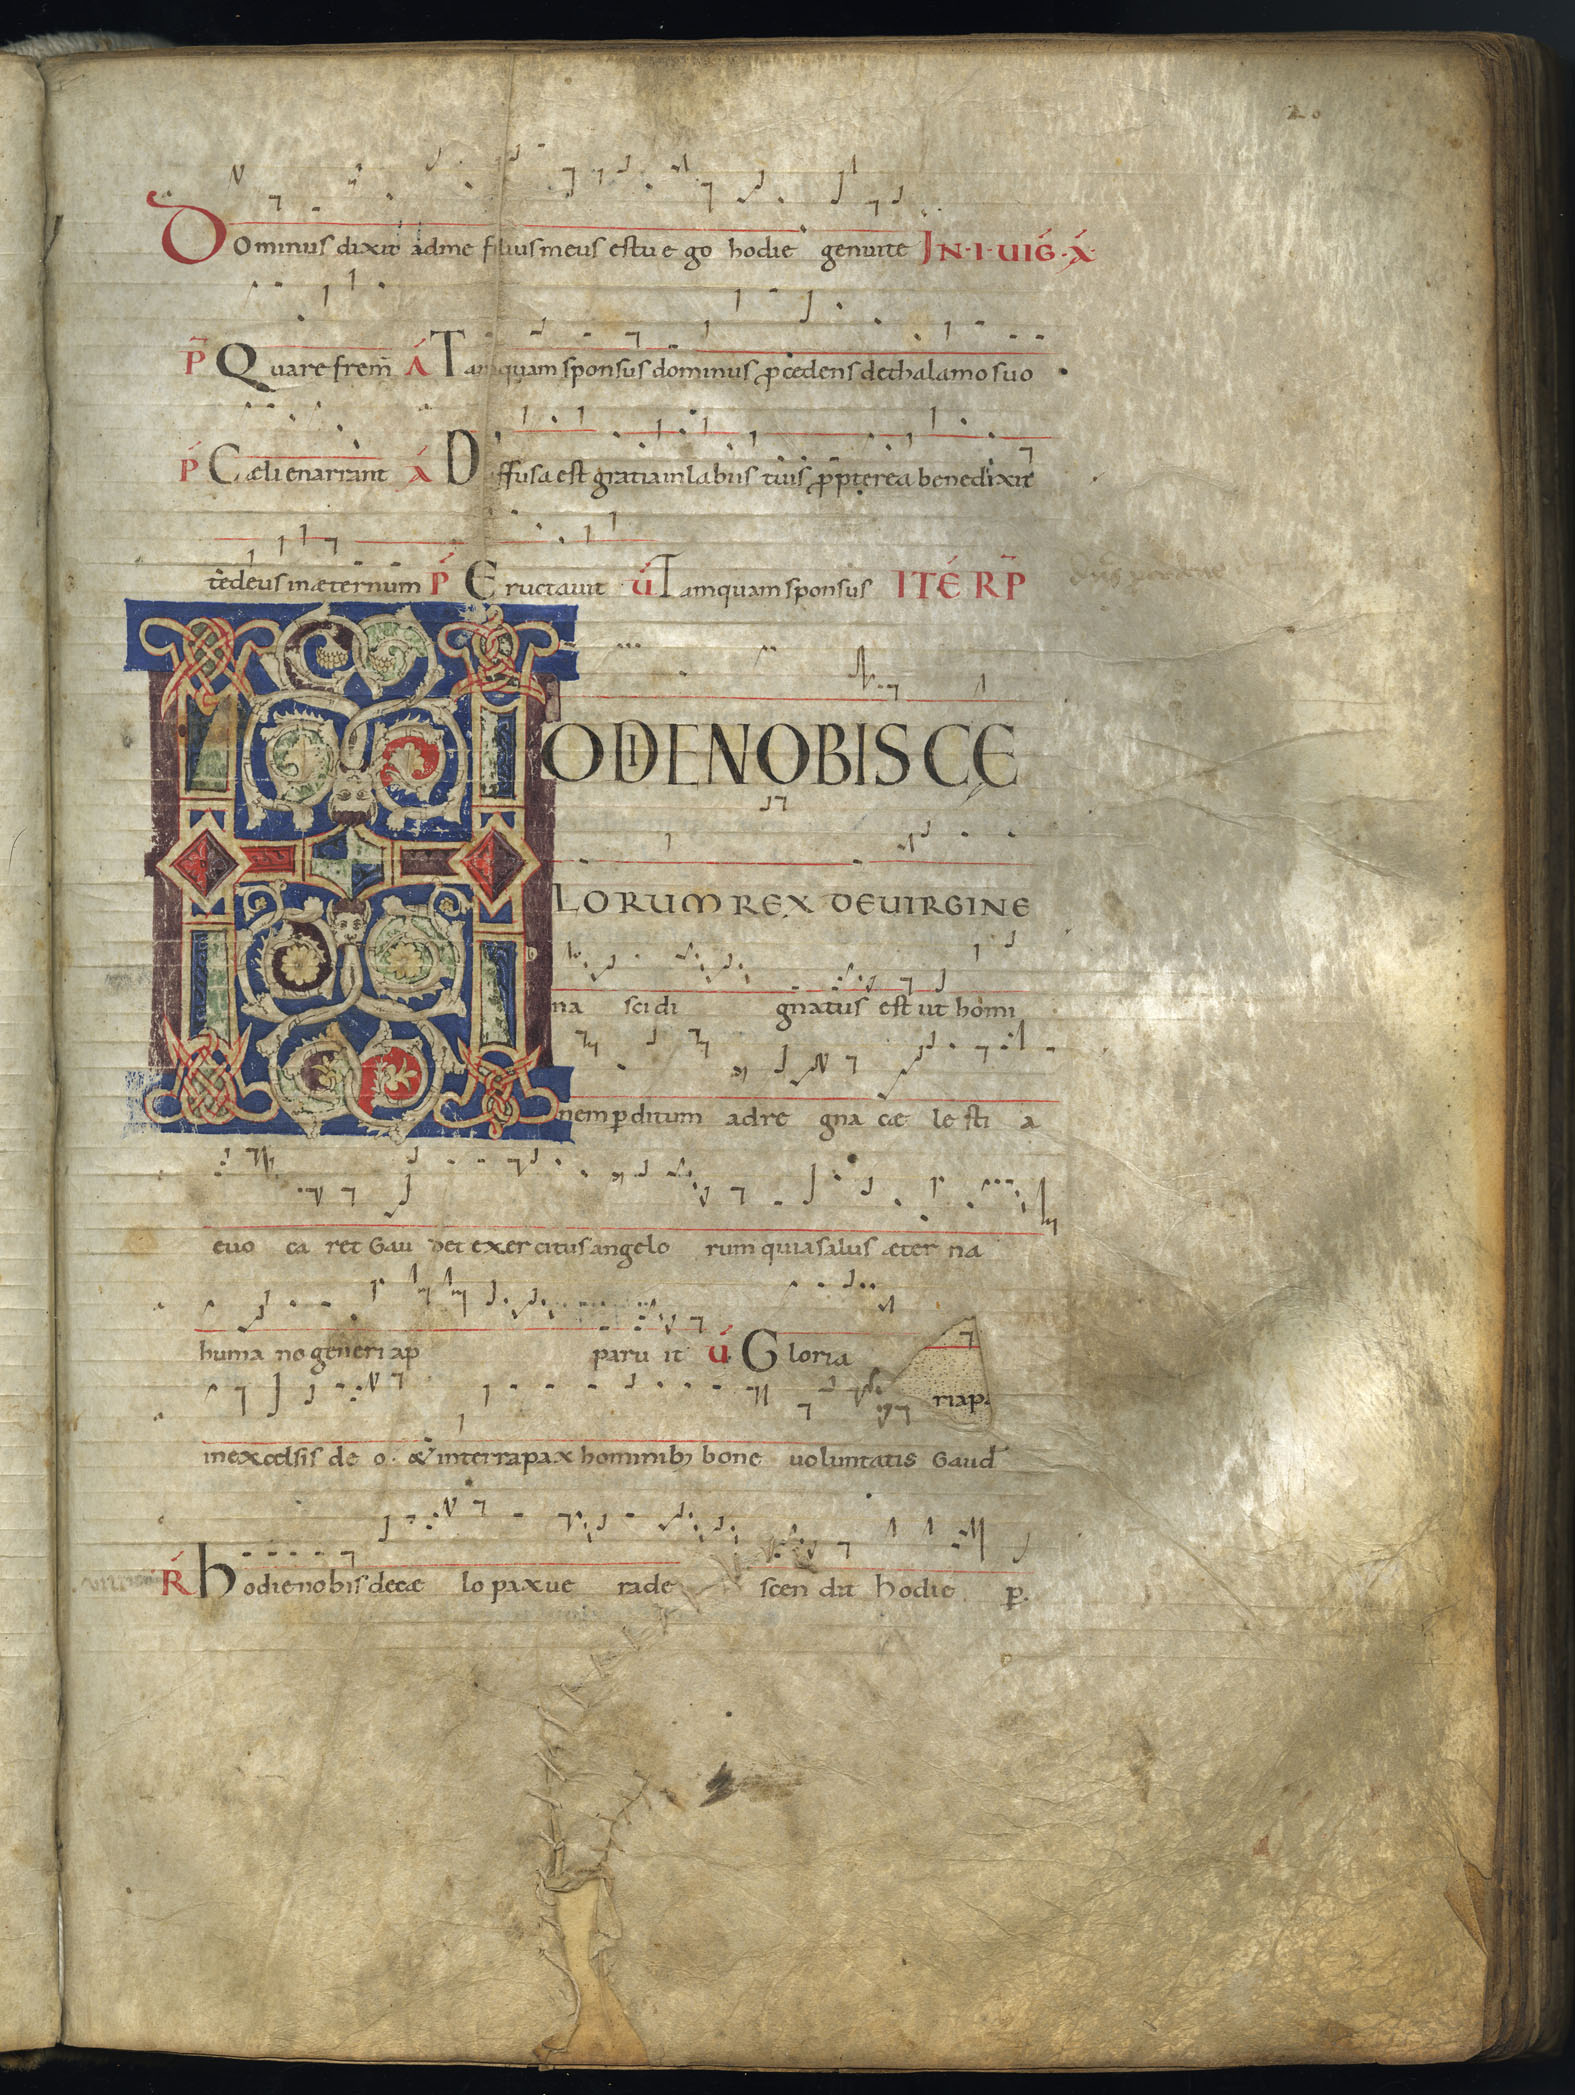 20
Dominus dixit ad me filius meus es tu ego hodie genui te IN·I·UIG·A
P Quare frem̄ A Tamquam sponsus dominus ꝓcedens dethalamo suo
P Cæli enarrant A Diffusa est gratia in labiis tuis ꝓpterea benedixit
te deus in æternum P Eructauit U Tamquam sponsus ITER P
HODIE NOBIS CE
LORUM REX DE UIRGINE
na sci di gnatus est ut homi
nem ꝑditum ad re gna cæ le sti a
euo ca ret Gau det exercitus angelo rum quia salus æter na
huma no generi ap paru it U Gloria
riap
in excelsis de o · & in terra pax hominib; bone uoluntatis Gaud
R Hodie nobis de cæ lo pax ue ra de scen dit hodie ꝑ.